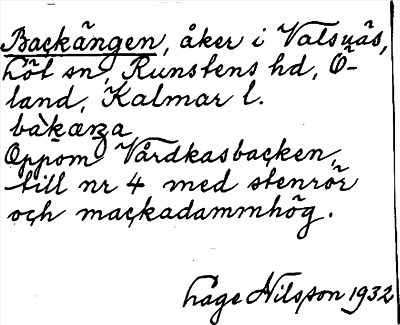 Backängen, åker i Valsnäs,
Löt sn, Runstens hd, Ö-
land, Kalmar l.
bàkæŋa
Oppom Vårdkasbacken,
till nr 4 med stenrör
och mackadammhög.
Åge Nilsson 1932